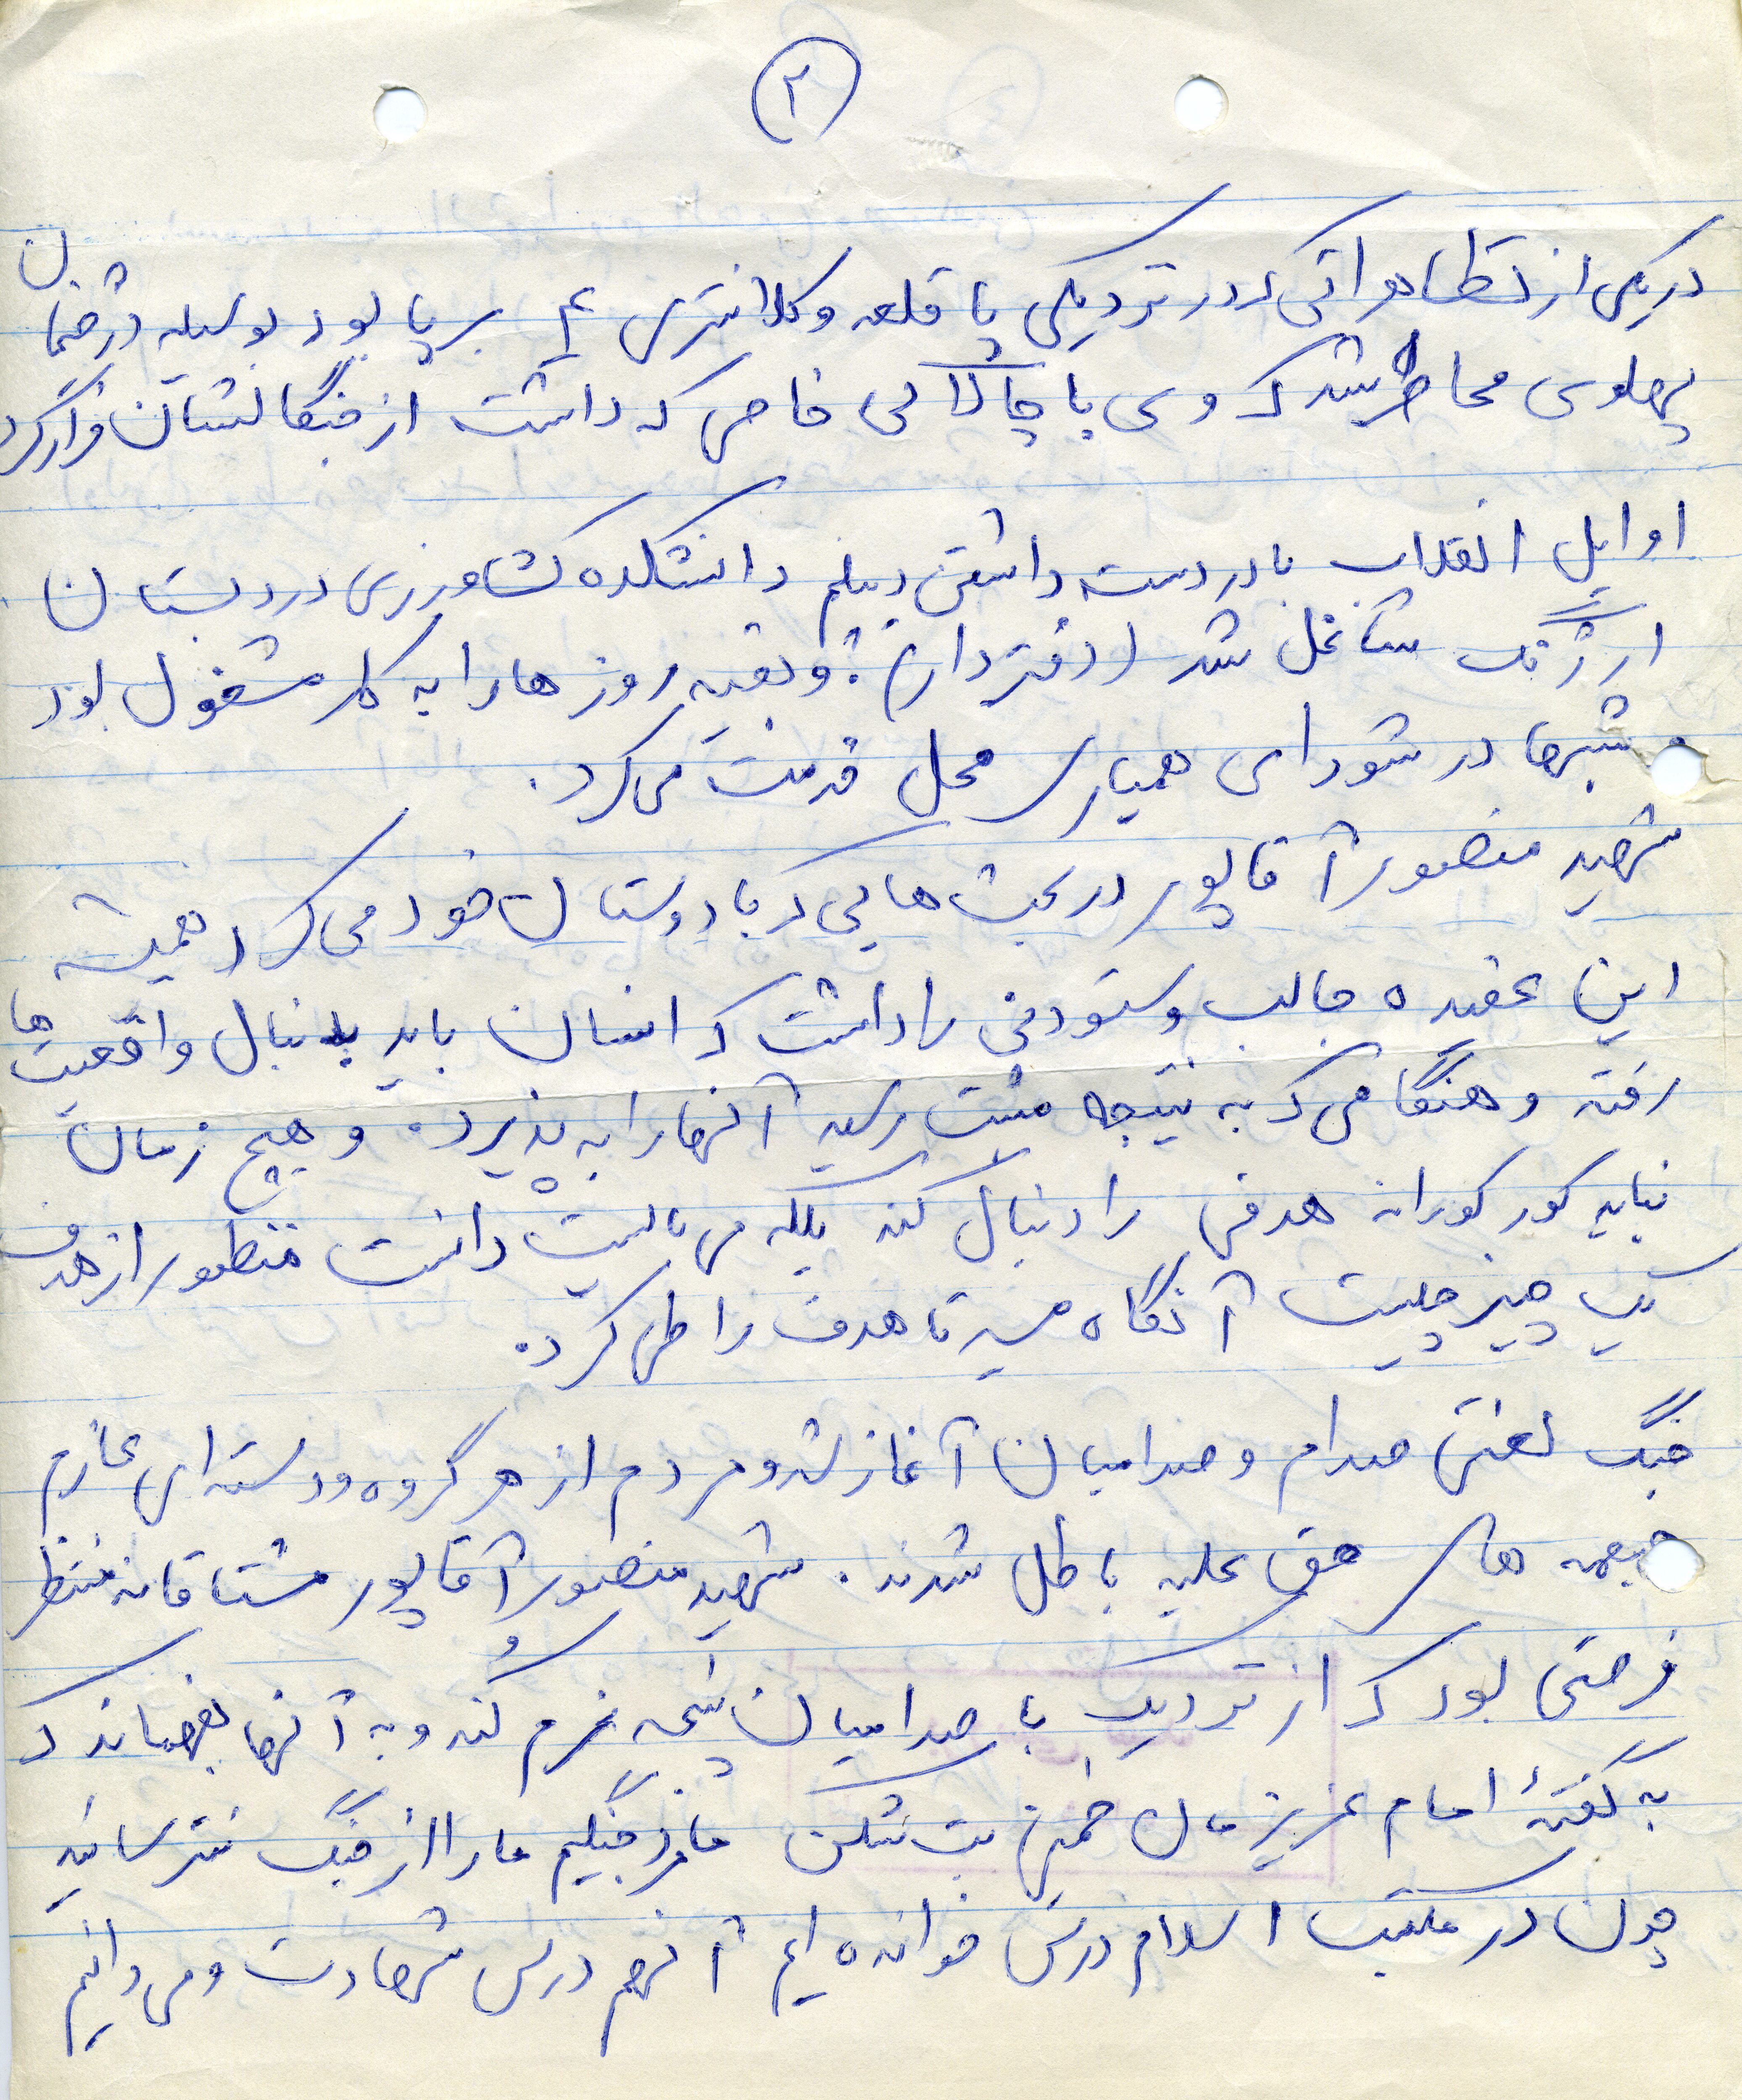 ۲
در یکی از تظاهراتی که در نزدیکی پا قلعه و کلانتری ۴ بر پا بود بوسیله دژخیمان
پهلوی محاصره شد که وی با چالاکی خاصی که داشت از چنگالشان فرار کرد
اوایل انقلاب با در دست داشتن دیپلم دانشکده کشاورزی در دبستان
ارژنگ شاغل شد (دفتردار) و بقیه روزها را به کار مشغول بود
و شبها در شورای همیاری محل خدمت می کرد.
شهید منصور آقاپور در بحث هایی که با دوستان خود می کرد همیشه
این عقیده جالب و ستودنی را داشت که انسان باید بدنبال واقعیت ها
رفته و هنگامی که به نتیجه مثبت رسید آنها را به پذیرد. و هیچ زمان
نباید کور کورانه هدفی را دنبال کند بلکه می بایست دانست منظور از هدف
یک چیز چیست آنگاه مسیر تا هدف را طی کرد.
جنگ لعنتی صدام و صدامیان آغاز شد و مردم از هر گروه و دسته ای عازم
جبهه های حق علیه باطل شدند. شهید منصور آقاپور مشتاقانه منتظر
فرصتی بود که از نزدیک با صدامیان پنجه نرم کند و به آنها بفهماند که
به گفتهٔ امام عزیزمان خمینی بت شکن ما مرد جنگیم ما را از جنگ نترسانید
چون در مکتب اسلام درس خوانده ایم آنهم درس شهادت و می دانیم